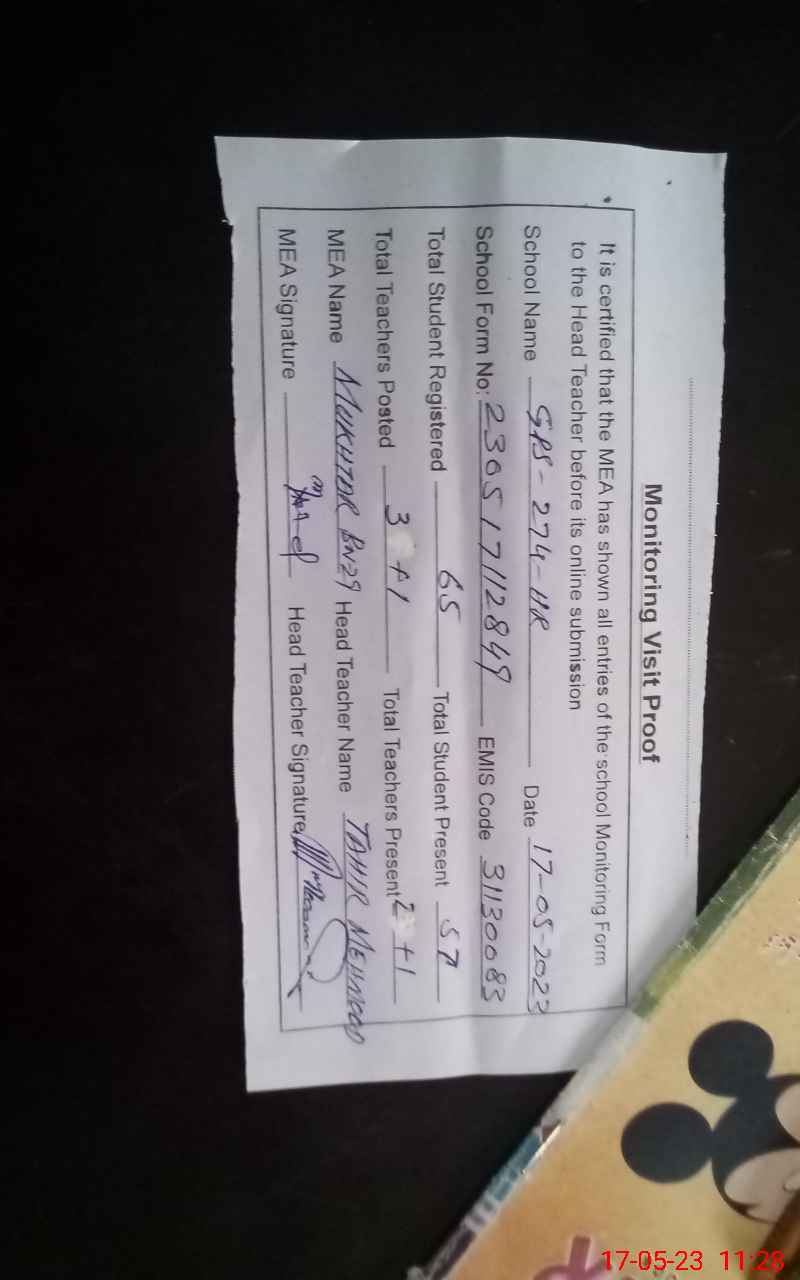 Monitoring Visit Proof
It is certified that the MEA has shown all entries of the school Monitoring Form
to the Head Teacher before its online submission
School Name GPS-274-HR Date 17-05-2023
School Form No: 230517112849 EMIS Code 31130083
Total Student Registered 65 Total Student Present 57
Total Teachers Posted 3+1 Total Teachers Present 2+1
MEA Name MUKHTAR Head Teacher Name TAHIR MEHMOOD
MEA Signature Head Teacher Signature
17-05-23 11:28